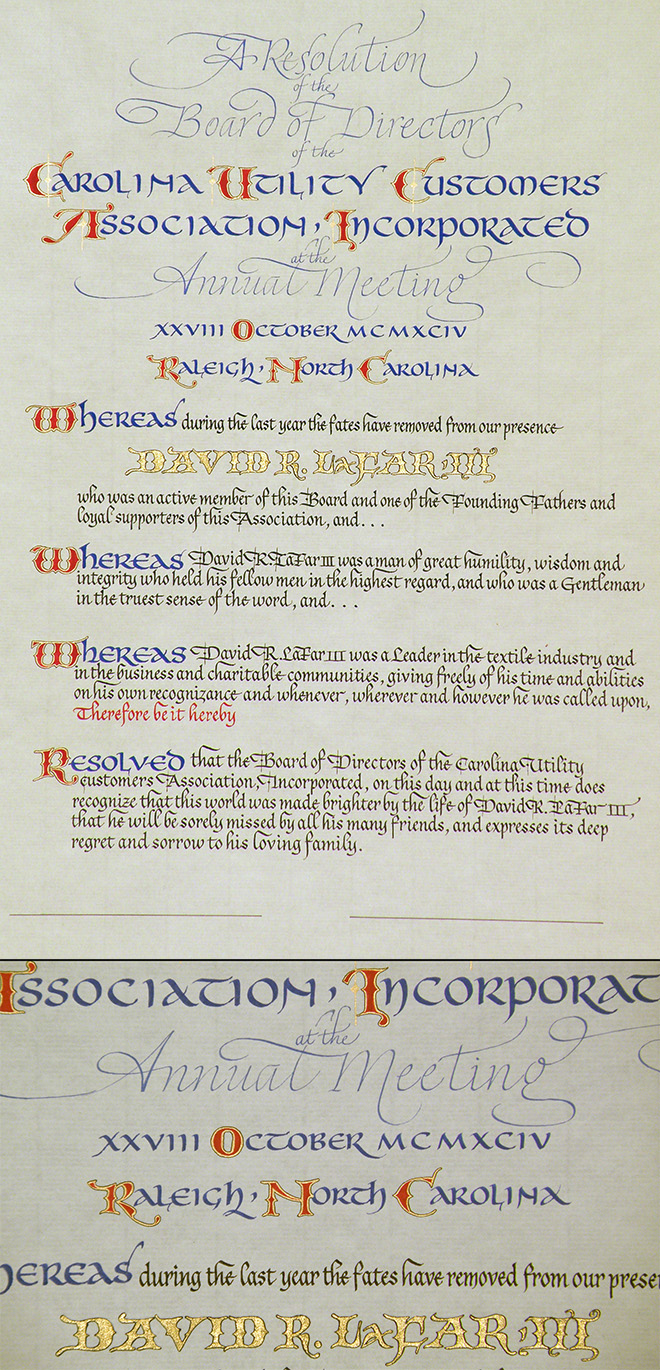 A Resolution
of the
Board of Directors
of the
Carolina Utility Customers
Association, Incorporated
at the
Annual Meeting
XXVIII October MCMXCIV
Raleigh, North Carolina
Whereas during the last year the fates have removed from our presence
DAVID R. LaFAR III
who was an active member of this Board and one of the Founding Fathers and
loyal supporters of this Association, and...
Whereas David R. LaFar III was a man of great humility, wisdom and
integrity who held his fellow men in the highest regard, and who was a Gentleman
in the truest sense of the word, and...
Whereas David R. LaFar III was a Leader in the textile industry and
in the business and charitable communities, giving freely of his time and abilities
on his own recognizance and whenever, wherever and however he was called upon,
Therefore be it hereby
Resolved that the Board of Directors of the Carolina Utility
customers Association, Incorporated, on this day and at this time does
recognize that this world was made brighter by the life of David R. LaFar III,
that he will be sorely missed by all his many friends, and expresses its deep
regret and sorrow to his loving family.
Association, Incorporat
at the
Annual Meeting
XXVIII October MCMXCIV
Raleigh, North Carolina
hereas during the last year the fates have removed from our prese
DAVID R. LaFAR III